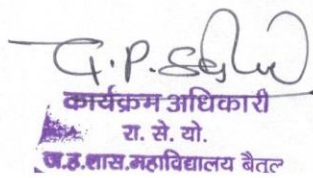 G.P. Sahu
कार्यक्रम अधिकारी
रा. से. यो.
ज.ह.शास.महाविद्यालय बैतूल